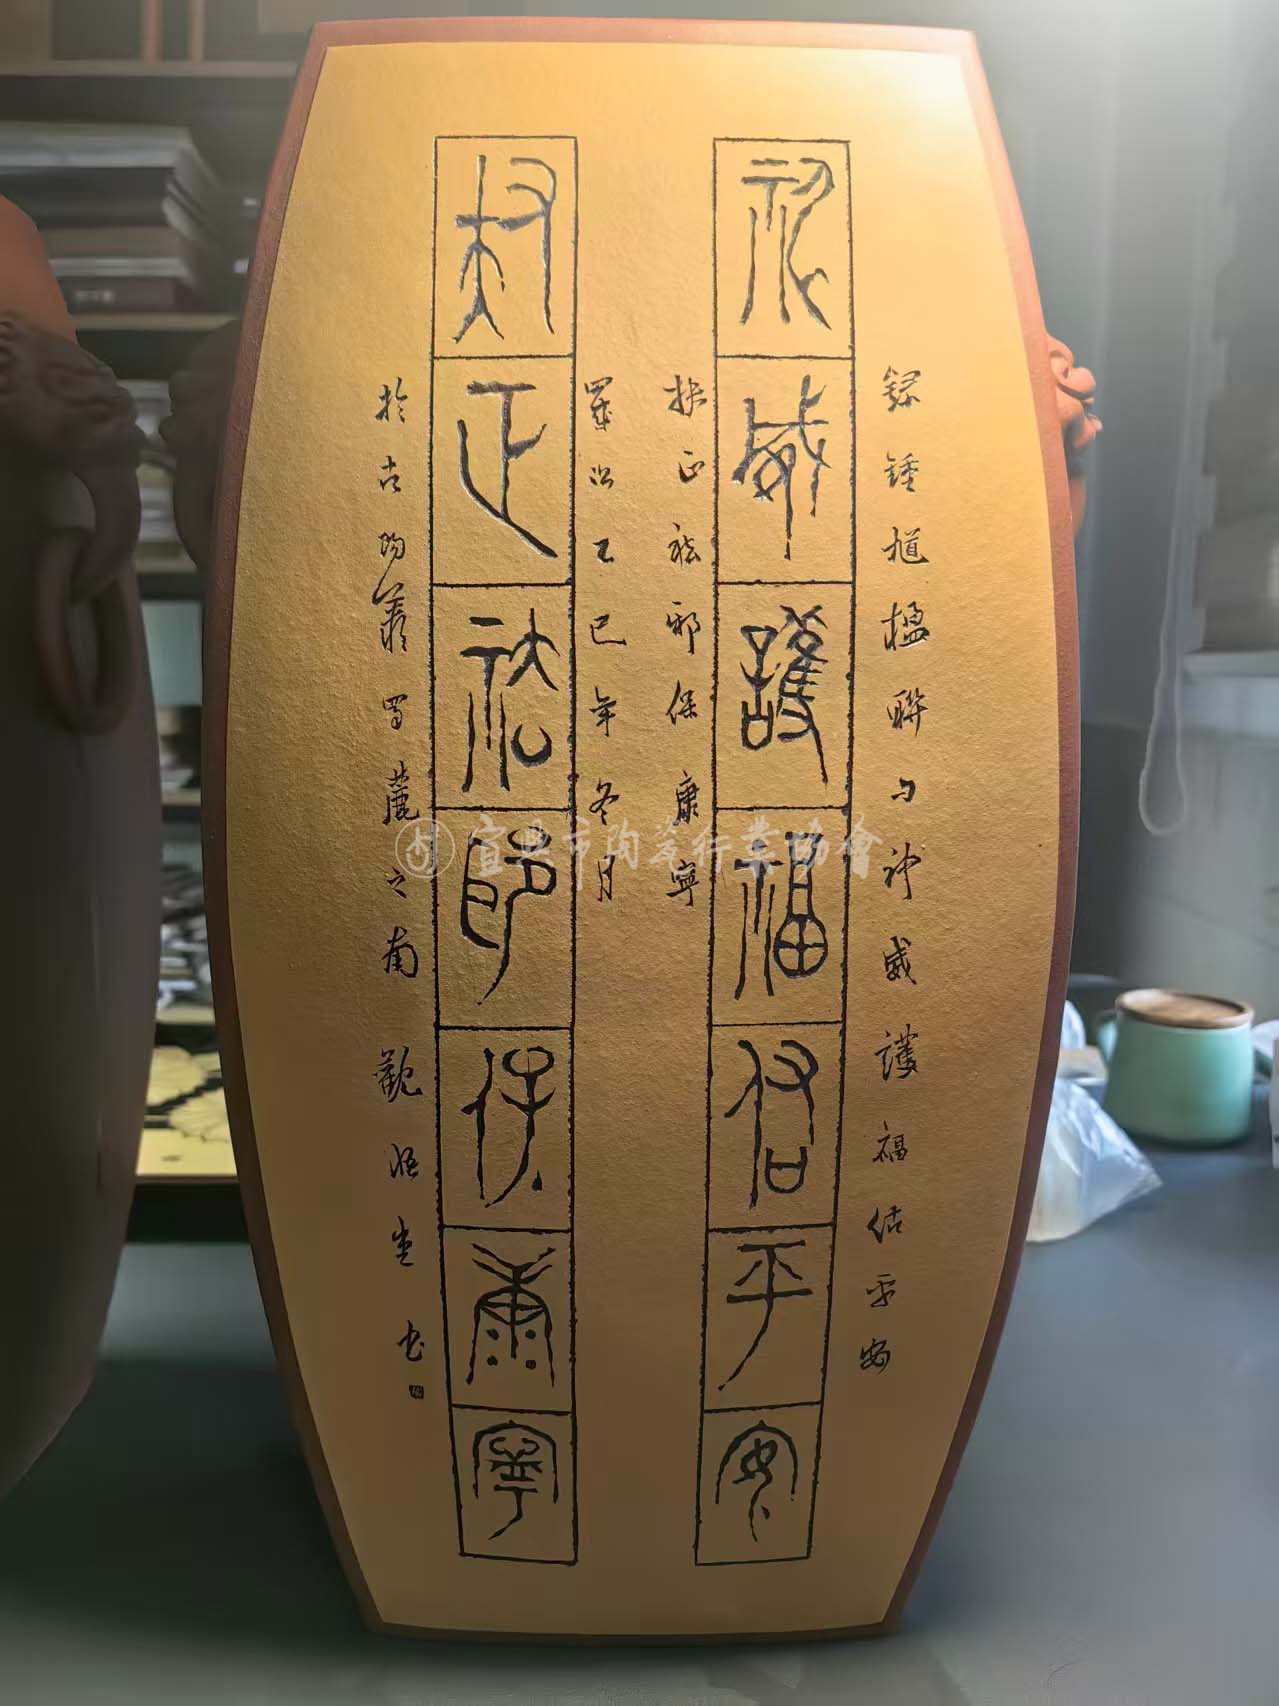 神威護福佑平安
扶正祛邪保康寧
錄鍾馗楹聯句神威護福佑平安
扶正祛邪保康寧
歲次乙巳年冬月
於古陽羨蜀麓之南觀涵堂書
宜興市陶瓷行業協會